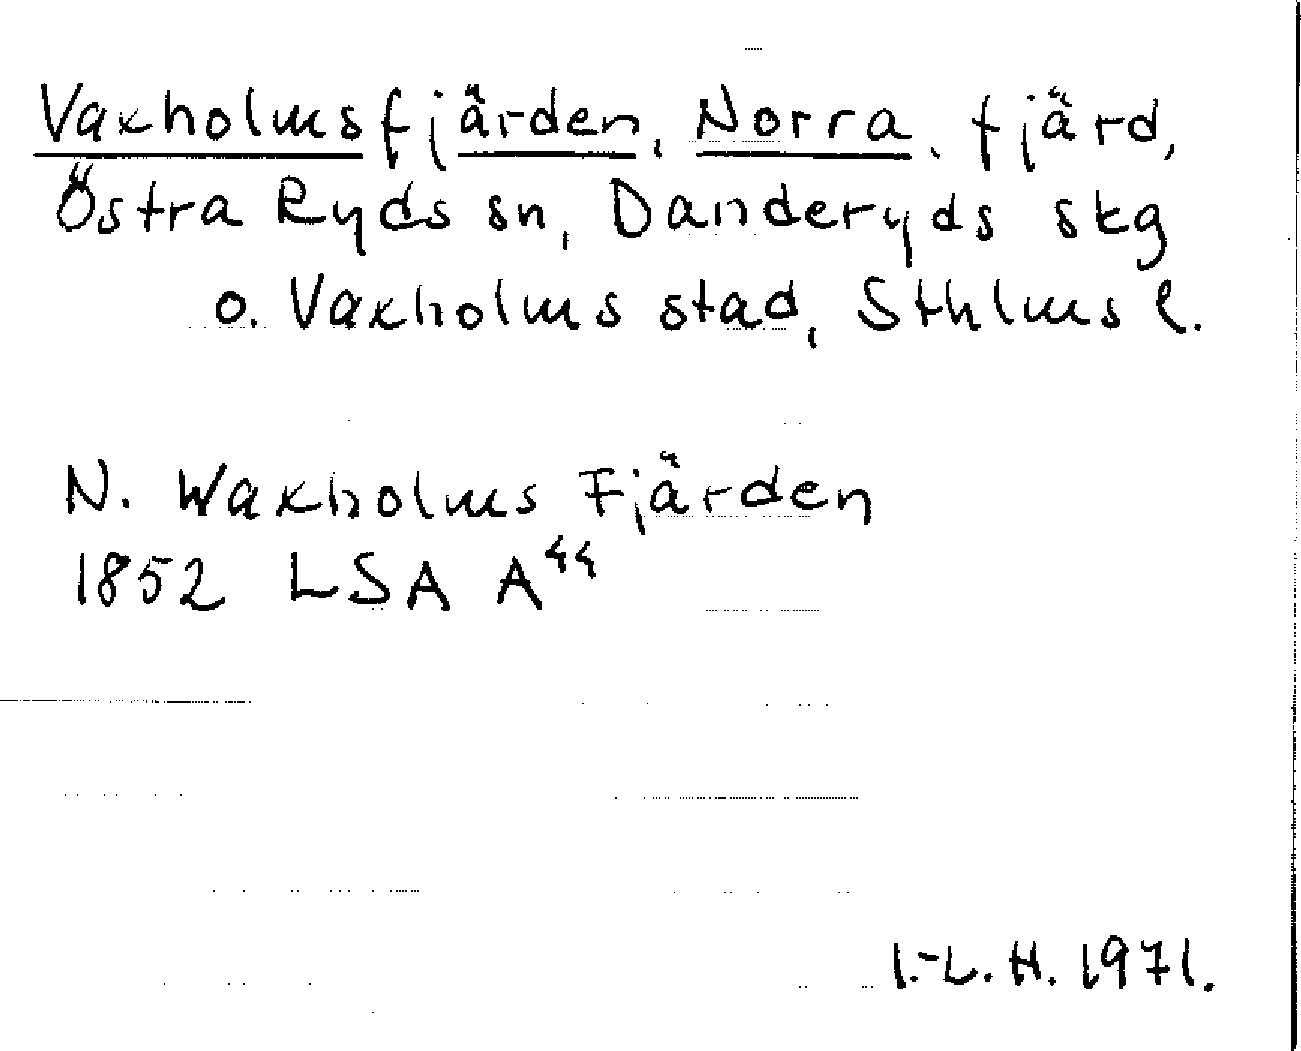 Vaxholmsfjärden, Norra, fjärd,
Östra Ryds sn, Danderyds skg
o. Vaxholms stad, Sthlms l.
N. Waxholms Fjärden
1852 LSA A⁴⁴
I.-L. H. 1971.